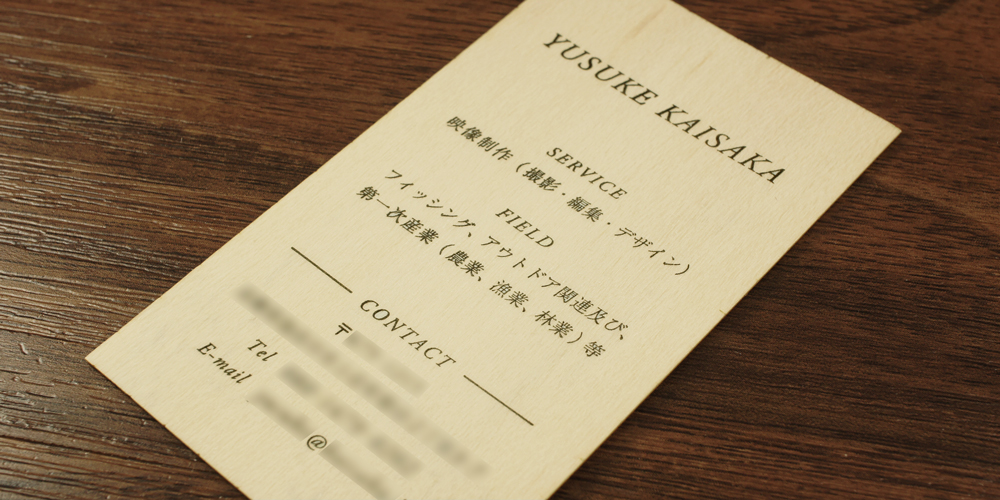 YUSUKE KAISAKA
SERVICE
映像制作（撮影・編集・デザイン）
FIELD
フィッシング、アウトドア関連及び、
第一次産業（農業、漁業、林業）等
CONTACT
〒
Tel
E-mail
@